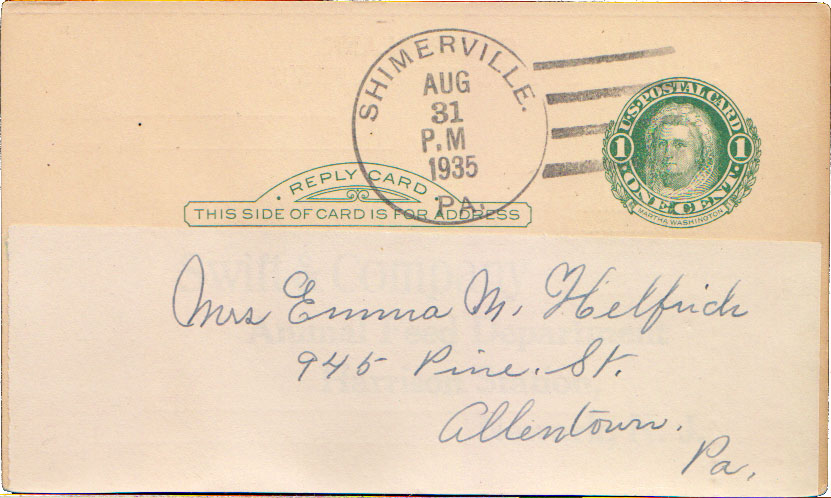 SHIMERVILLE.
AUG
31
P.M
1935
PA.
U.S. POSTAL CARD
1 1
ONE CENT
MARTHA WASHINGTON
REPLY CARD
THIS SIDE OF CARD IS FOR ADDRESS
Mrs Emma M. Helfrich
945 Pine. St.
Allentown.
Pa.